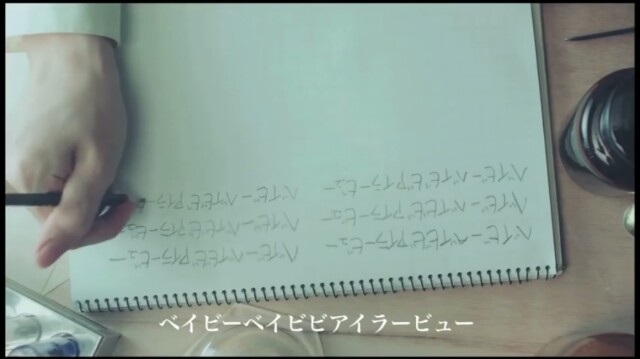 ベイビーベイビビアイラービュー
ベイビーベイビビアイラービュー
ベイビーベイビビアイラービュー
ベイビーベイビビアイラービュー
ベイビーベイビビアイラービュー
ベイビーベイビビアイラー
ベイビーベイビビアイラービュー